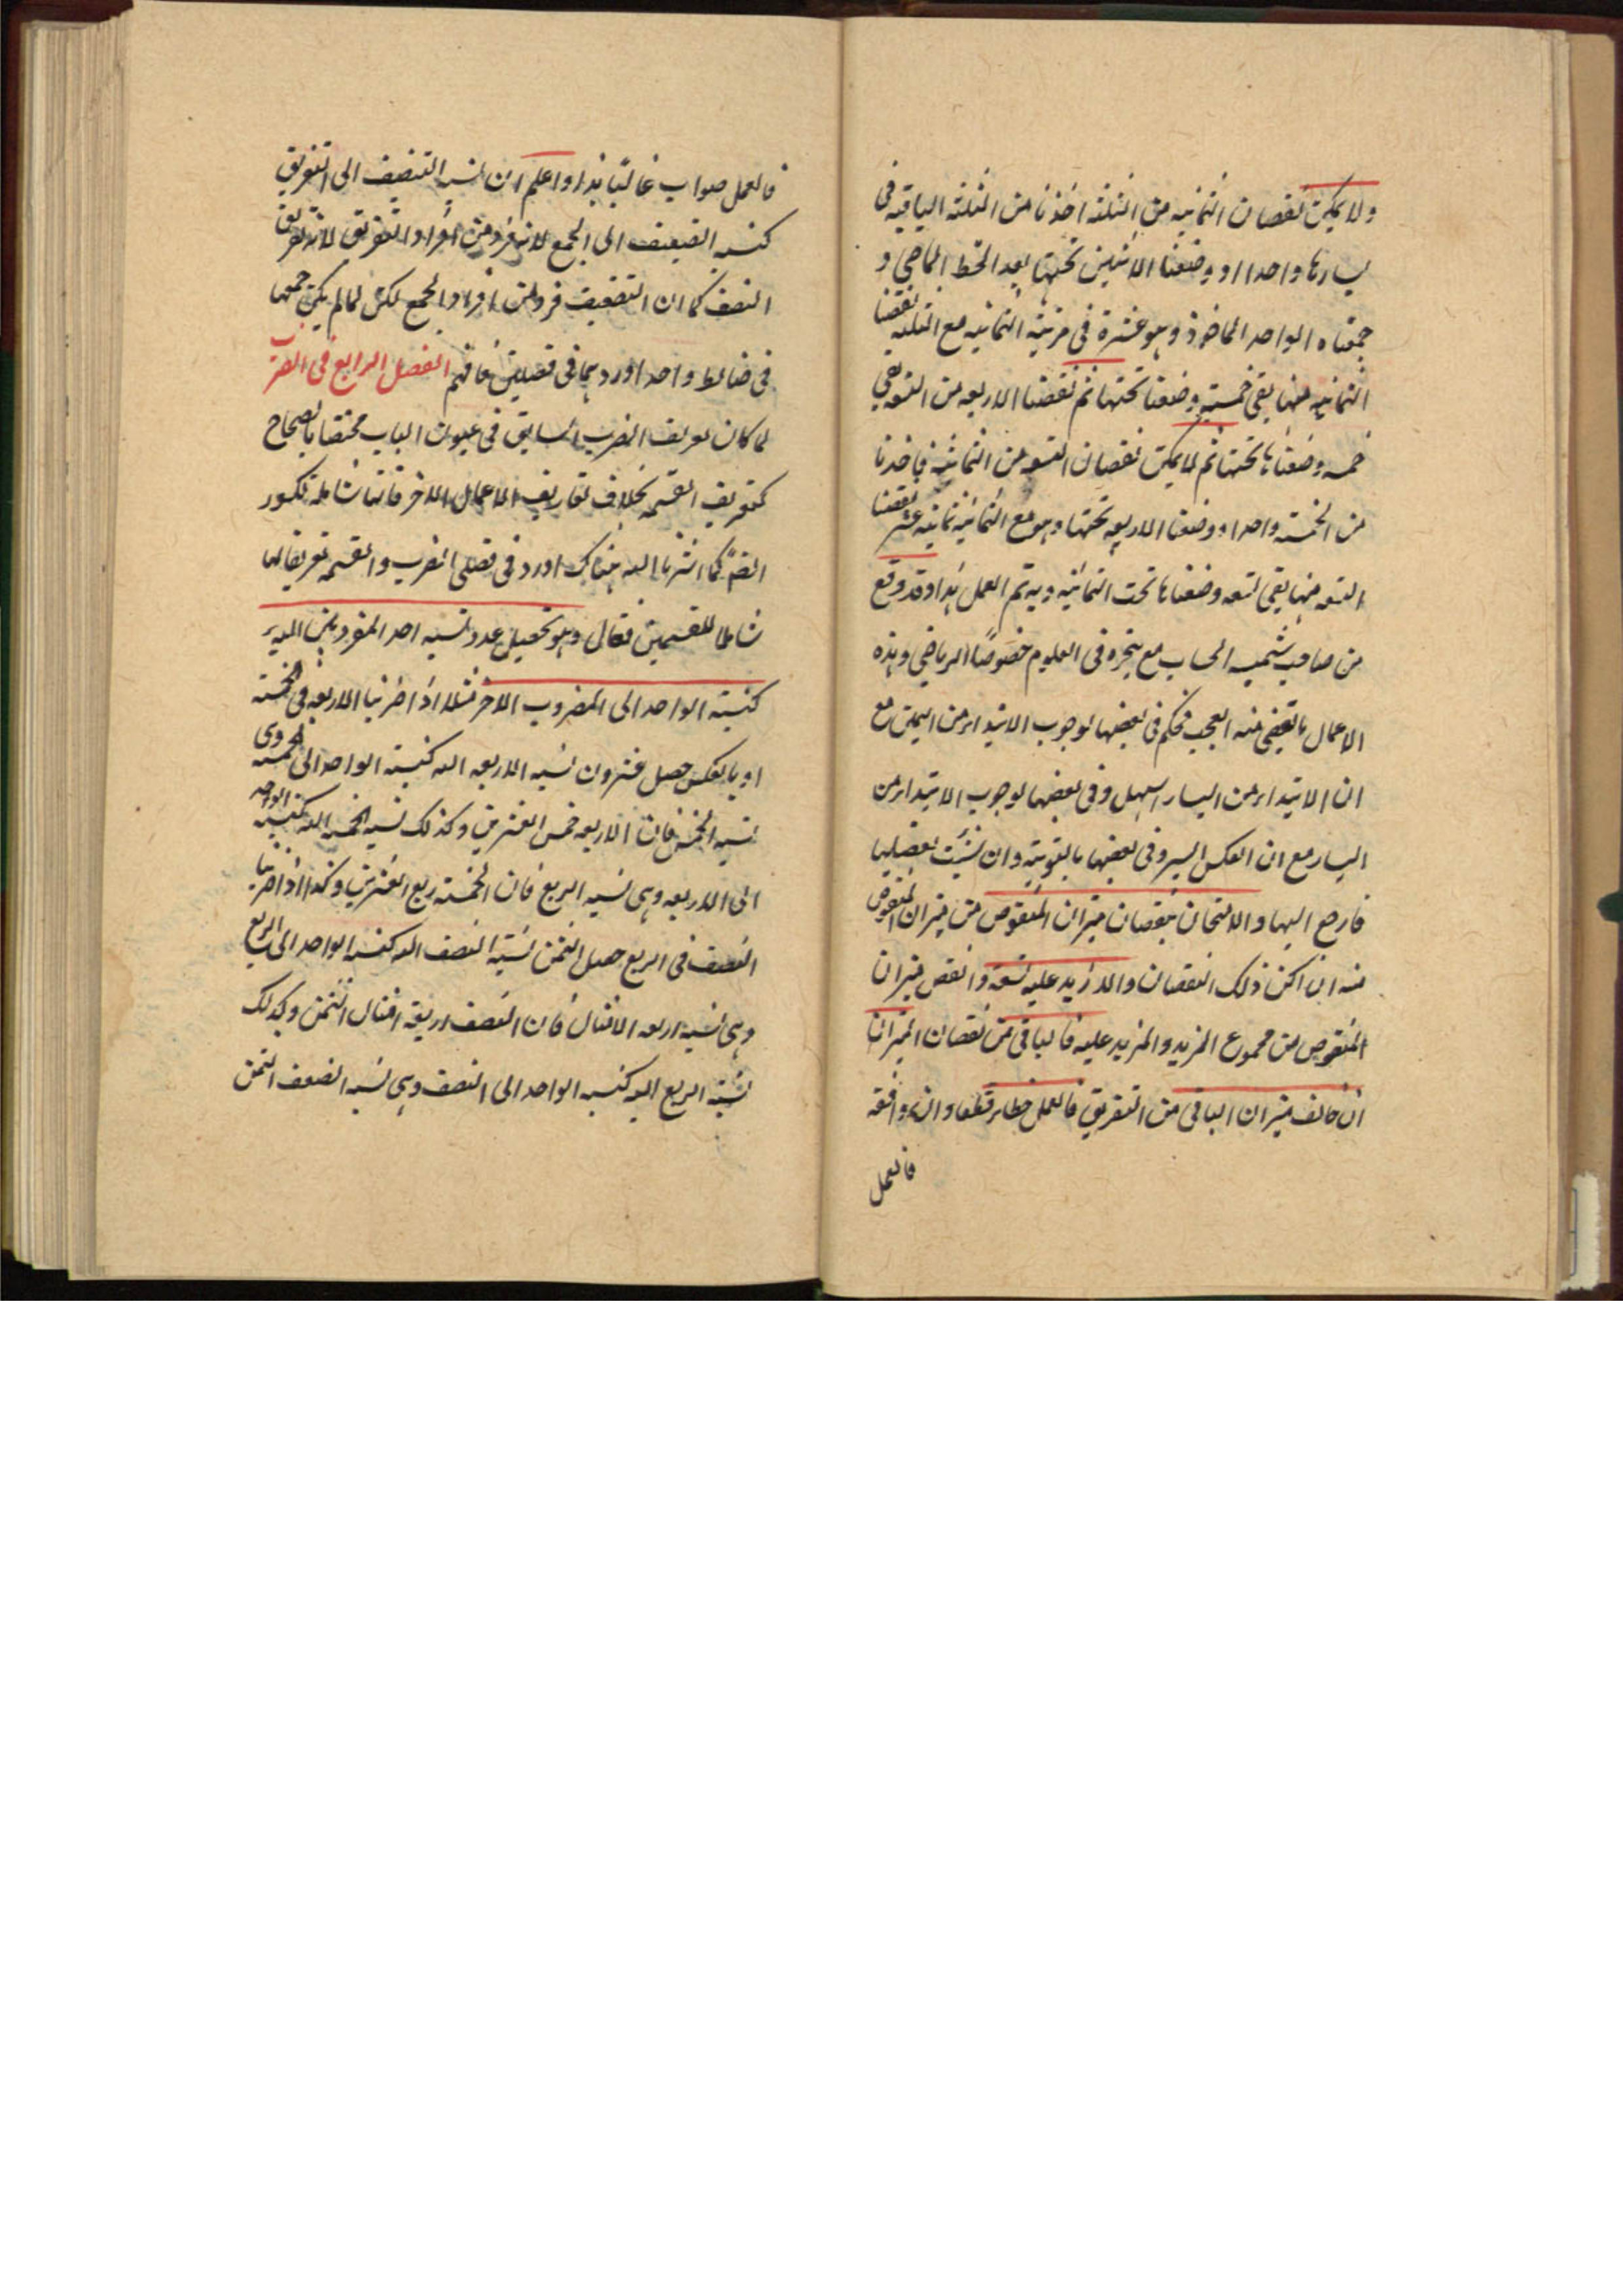 ولا يمكن نقصان الثمانيه من الثلثه اخذنا من الثلثه الباقيه فى
يسارها واحدا و وضعنا الاثنين تحتها بعد الخط الماحى و
جمعناه الواحد الماخوذ وهو عشرة فى مرتبة الثمانيه مع الثلثه نقصنا
الثمانيه منها بقى خمسة وضعنا تحتها ثم نقصنا الاربعه من التسعه بقى
خمسه وضعناها تحتها ثم لا يمكن نقصان التسعه من الثمانية فاخذنا
من الخمسة واحدا ووضعنا الاربعه تحتها وهو مع الثمانيه ثمانية عشر نقصنا
التسعه منها بقى تسعه وضعناها تحت الثمانيه وبه تم العمل هذا وقد وقع
من صاحب شمسيه الحساب مع تبحره فى العلوم خصوصًا الرياضى وهذه
الاعمال ما يقضى منه العجب فحكم فى بعضها بوجوب الابتداء من اليمين مع
ان الابتداء من اليسار اسهل وفى بعضها بوجوب الابتداء من
اليسار مع ان العكس ايسر وفى بعضها بالتسوية وان شئت تفصيلها
فارجع اليها والامتحان بنقصان ميزان المنقوص من ميزان المنقوص
منه ان امكن ذلك النقصان والا زيد عليه تسعة وانقص ميزان
المنقوص من مجموع المزيد والمزيد عليه فالباقى من نقصان الميزان
ان خالف ميزان الباقى من التفريق فالعمل خطاء قطعا وان وافقه
فالعمل
فالعمل صواب غالبًا هذا واعلم ان نسبة التنصيف الى التفريق
كنسبه التضعيف الى الجمع لانه فرد من افراد التفريق لانه تفريق
النصف كما ان التضعيف فرد من افراد الجمع لكن لما لم يكن جمعها
فى ضابط واحد اوردهما فى فصلين فافهم الفصل الرابع فى الضرب
لما كان تعريف الضرب السابق فى عنوان الباب مختصا بالصحاح
كتعريف القسمه بخلاف تعاريف الاعمال الاخر فانها شاملة للكسور
ايضًا كما اشرنا اليه هناك اورد فى فصلى الضرب والقسمه تعريفا لها
شاملا للقسمين فقال وهو تحصيل عدد نسبه احد المضروبين اليه
كنسبة الواحد الى المضروب الاخر مثلا اذا ضربنا الاربعه فى الخمسة
او بالعكس حصل عشرون نسبه الاربعه اليه كنسبة الواحد الى الخمسه وهى
نسبه الخمس فان الاربعه خمس العشرين وكذلك نسبه الخمسه اليه كنسبة الواحد
الى الاربعه وهى نسبه الربع فان الخمسة ربع العشرين وكذا اذا ضربنا
النصف فى الربع حصل الثمن نسبة النصف اليه كنسبه الواحد الى الربع
وهى نسبه اربعه الامثال فان النصف اربعة امثال الثمن وكذلك
نسبة الربع اليه كنسبه الواحد الى النصف وهى نسبه الضعف الثمن